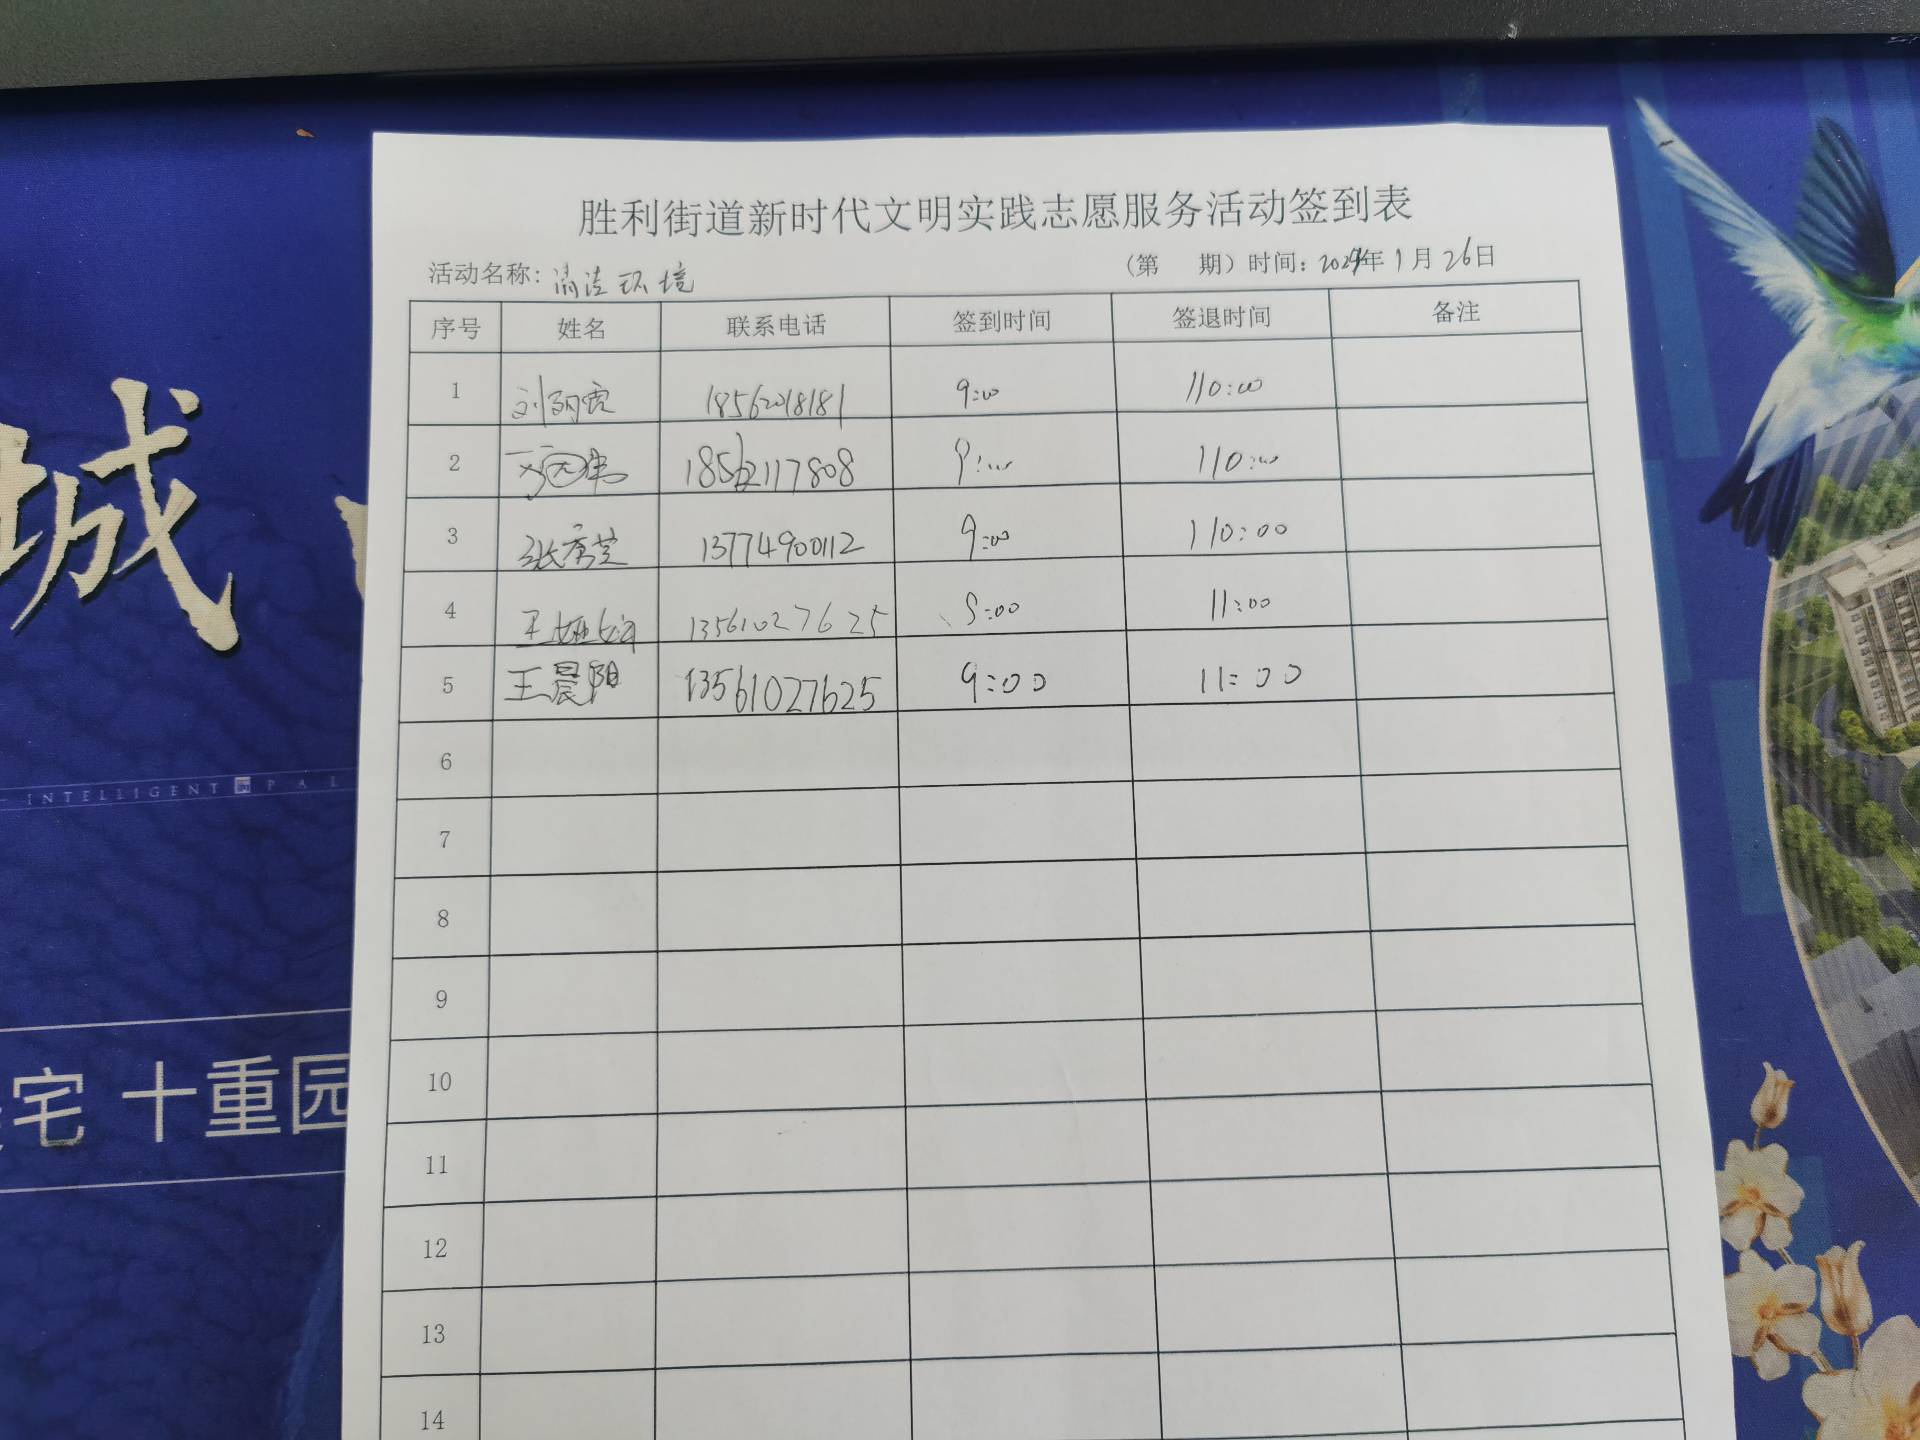 胜利街道新时代文明实践志愿服务活动签到表
活动名称：清洁环境 （第 期）时间：2024年1月26日
序号 姓名 联系电话 签到时间 签退时间 备注
1 刘 18562018181 9:00 110:00
2 18562117808 9:00 110:00
3 张秀芝 13774900112 9:00 110:00
4 王 13561027625 9:00 11:00
5 王晨阳 13561027625 9:00 11:00
6
7
8
9
10
11
12
13
14
城
INTELLIGENT PAL
宅 十重园